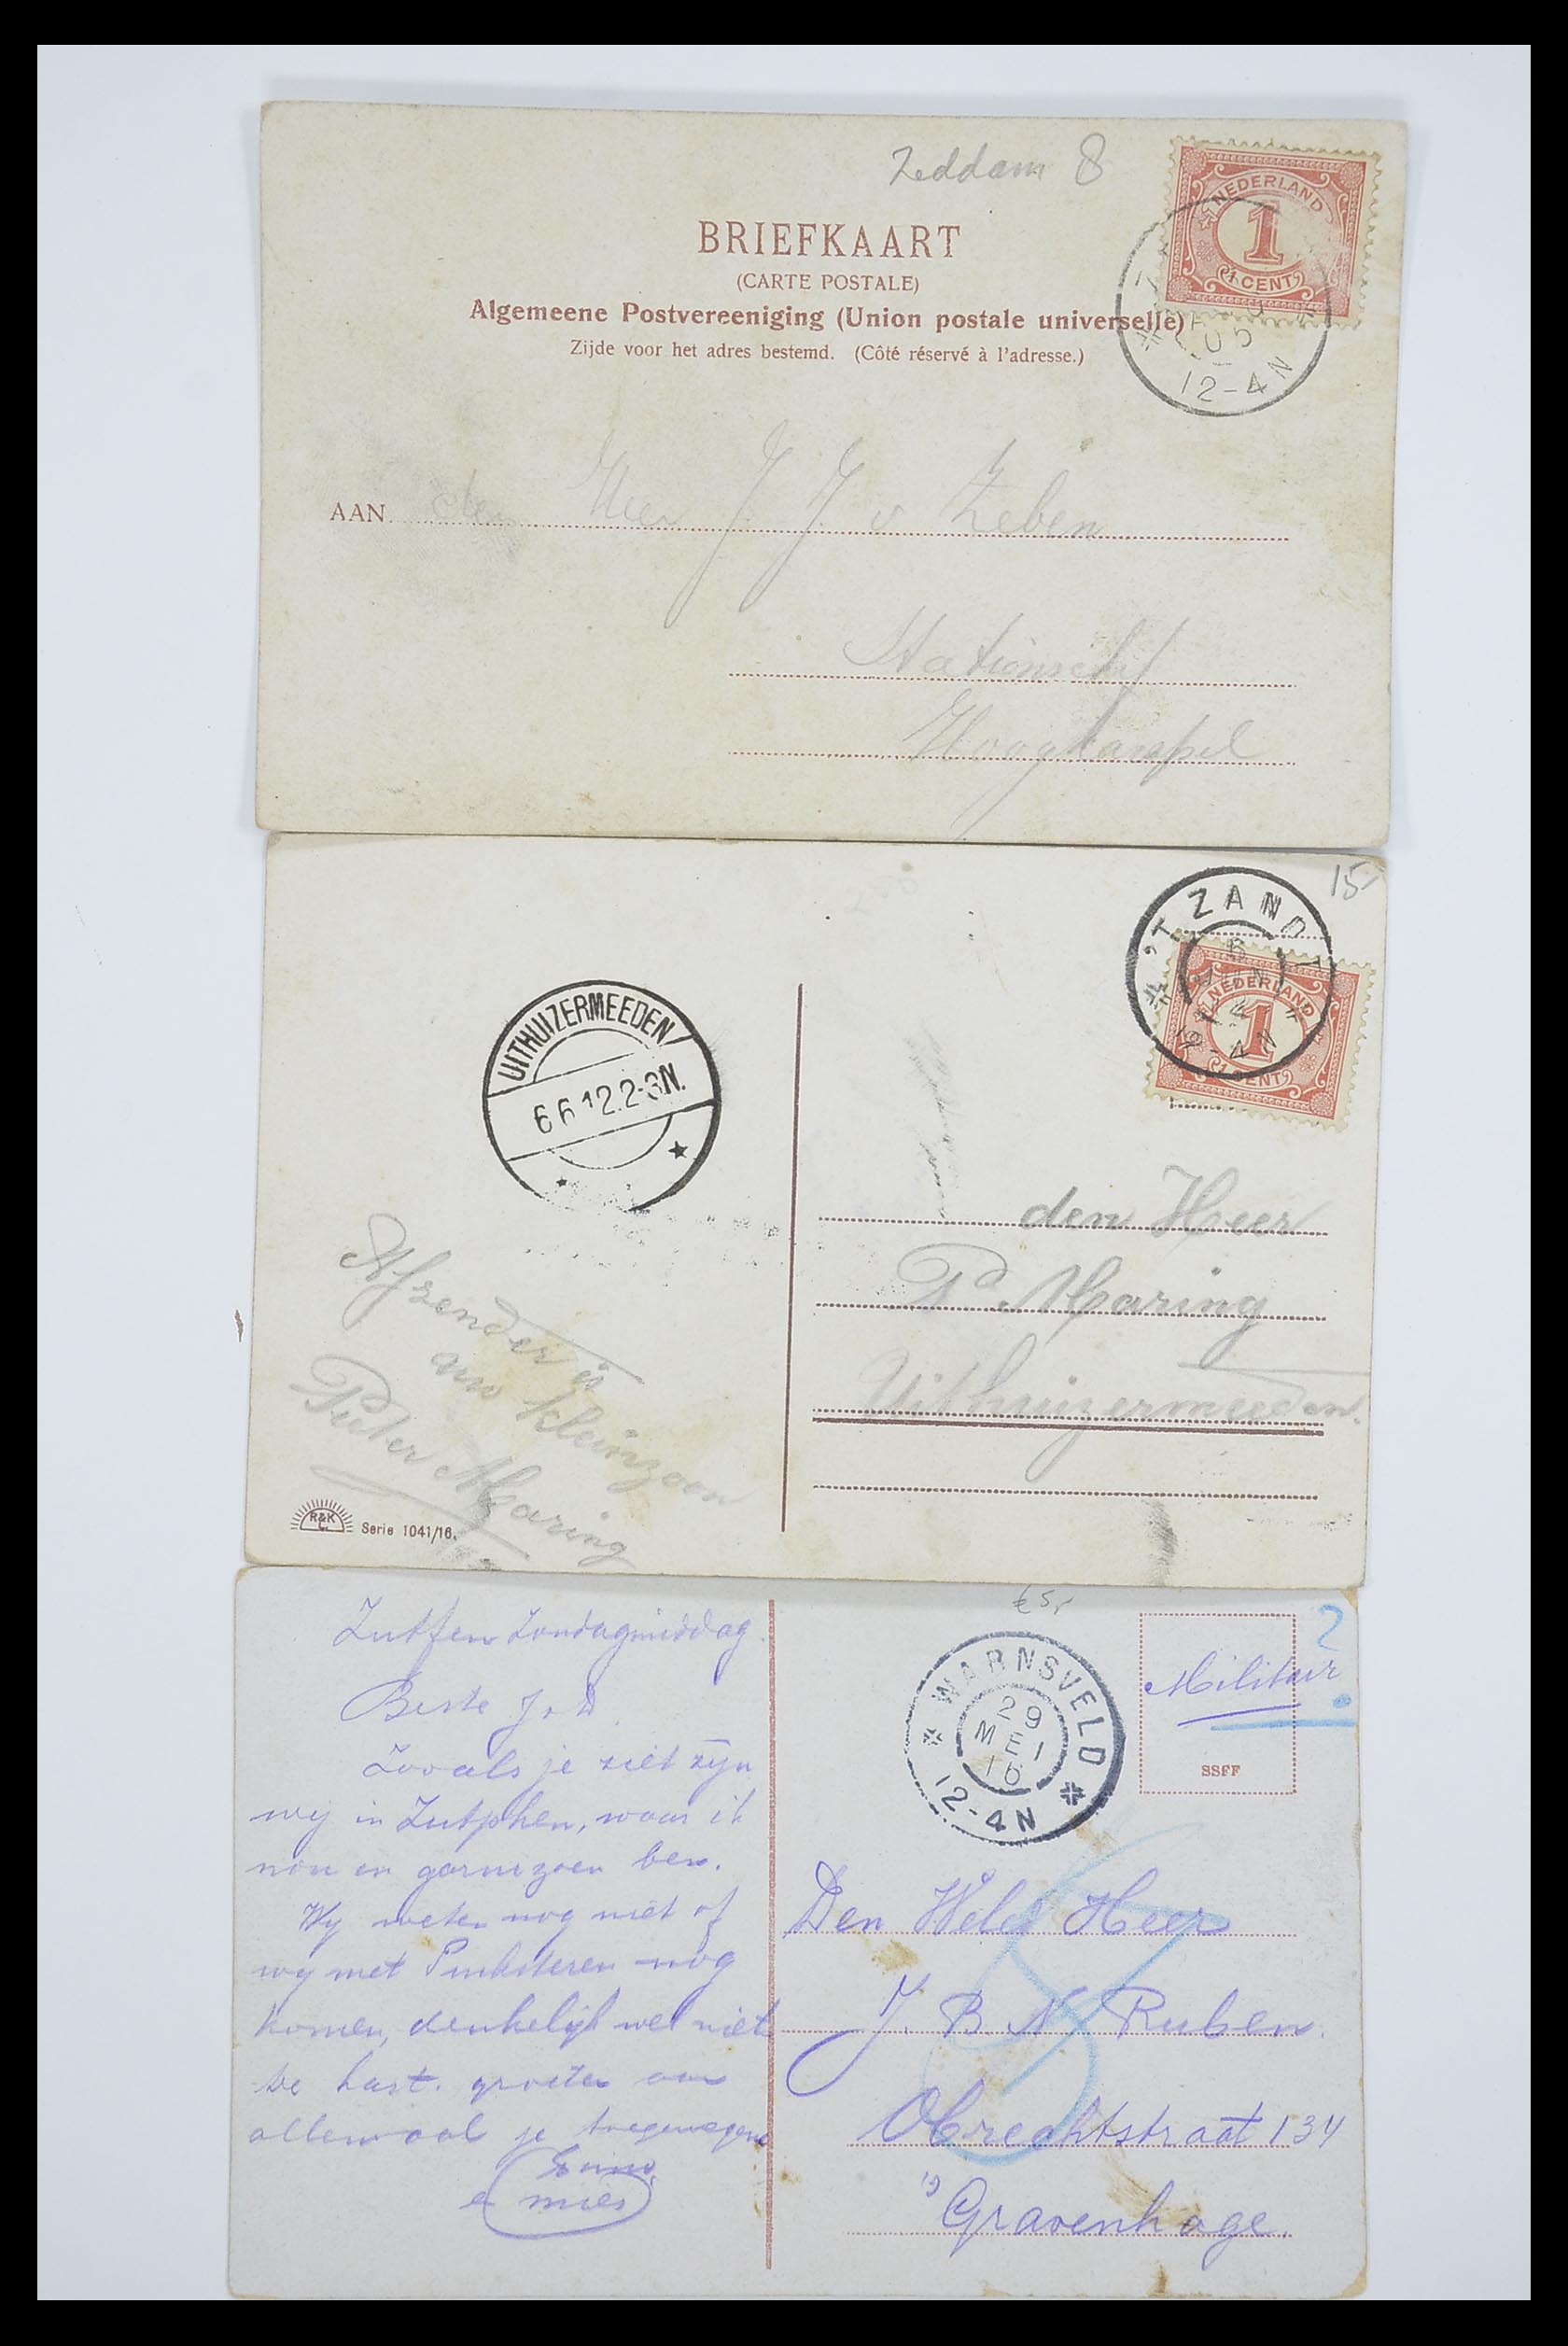 Zeddam 8
NEDERLAND
1
1 CENT
BRIEFKAART
(CARTE POSTALE)
Algemeene Postvereeniging (Union postale universelle)
Zijde voor het adres bestemd. (Côté réservé à l'adresse.)
05
12-4N
AAN den Heer J. J. v Zeben
Stationschef
Hoogkarspel
15
'T ZANDT
6
JUN
12
12-4N
NEDERLAND
1
1 CENT
UITHUIZERMEEDEN
6 6 12.2-3N.
den Heer
Pd. Haring
Uithuizermeeden.
Afzender is
uw kleinzoon
Pieter Haring
R&K
L
Serie 1041/16.
€ 5,-
2
Militair
SSFF
WARNSVELD
29
MEI
16
12-4N
Zutfen Zondagmiddag.
Beste J. D.
Zooals je ziet zijn
wij in Zutphen, waar ik
nou in garnizoen ben.
Wy weten nog niet of
wy met Pinksteren nog
komen, denkelijk wel niet
De hart. groeten aan
allemaal je toegenegen
en mies
Den Weled Heer
J. B. N. Ruben.
Obrechtstraat 134
's Gravenhage.